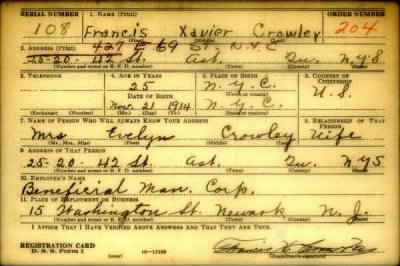 SERIAL NUMBER 1. NAME (Print) ORDER NUMBER
108 Francis Xavier Crowley 204
(First) (Middle) (Last)
427 E 69 ST. N.Y.C
2. ADDRESS (Print)
25-20- 42 St. Ast. Qu. N.Y.S
(Number and street or R. F. D. number) (Town) (County) (State)
3. TELEPHONE 4. AGE IN YEARS 5. PLACE OF BIRTH 6. COUNTRY OF CITIZENSHIP
25 N.Y.C. U.S.
DATE OF BIRTH (Town or county)
Nov. 21 1914 N.Y.C.
(Exchange) (Number) (Mo.) (Day) (Yr.) (State or country)
7. NAME OF PERSON WHO WILL ALWAYS KNOW YOUR ADDRESS 8. RELATIONSHIP OF THAT PERSON
Mrs Evelyn Crowley Wife
(Mr., Mrs., Miss) (First) (Middle) (Last)
9. ADDRESS OF THAT PERSON
25-20- 42 St. Ast. Qu. NYS
(Number and street or R. F. D. number) (Town) (County) (State)
10. EMPLOYER'S NAME
Beneficial Man. Corp.
11. PLACE OF EMPLOYMENT OR BUSINESS
15 Washington St. Newark N.J.
(Number and street or R. F. D. number) (Town) (County) (State)
I AFFIRM THAT I HAVE VERIFIED ABOVE ANSWERS AND THAT THEY ARE TRUE.
REGISTRATION CARD
D. S. S. Form 1 (Registrant's signature)